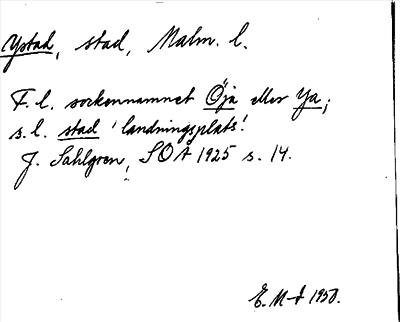 Ystad, stad, Malm. l.
F. l. sockennamnet Öja eller Ya;
s. l. stad 'landningsplats'.
J. Sahlgren, SOÅ 1925 s. 14.
E. M-t 1950.